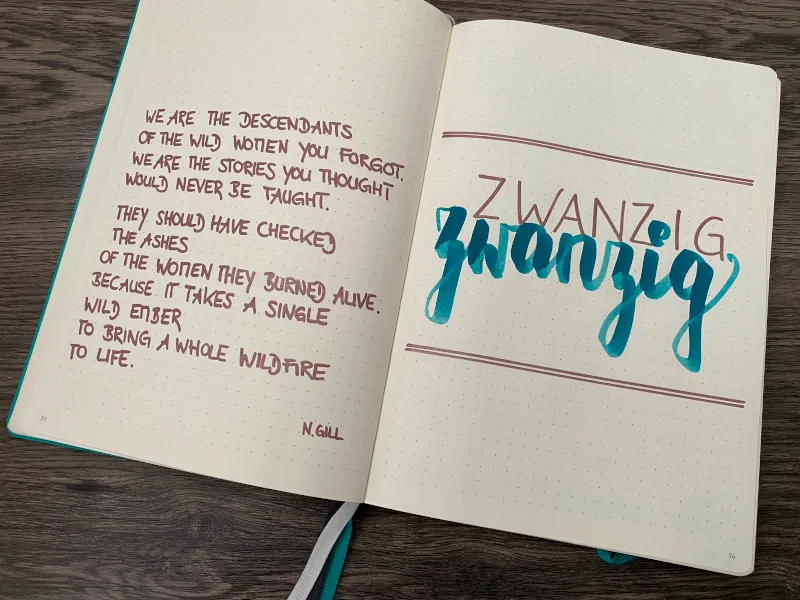 WE ARE THE DESCENDANTS
OF THE WILD WOMEN YOU FORGOT.
WE ARE THE STORIES YOU THOUGHT
WOULD NEVER BE TAUGHT.
THEY SHOULD HAVE CHECKED
THE ASHES
OF THE WOMEN THEY BURNED ALIVE.
BECAUSE IT TAKES A SINGLE
WILD EMBER
TO BRING A WHOLE WILDFIRE
TO LIFE.
N. GILL
ZWANZIG
zwanzig
56